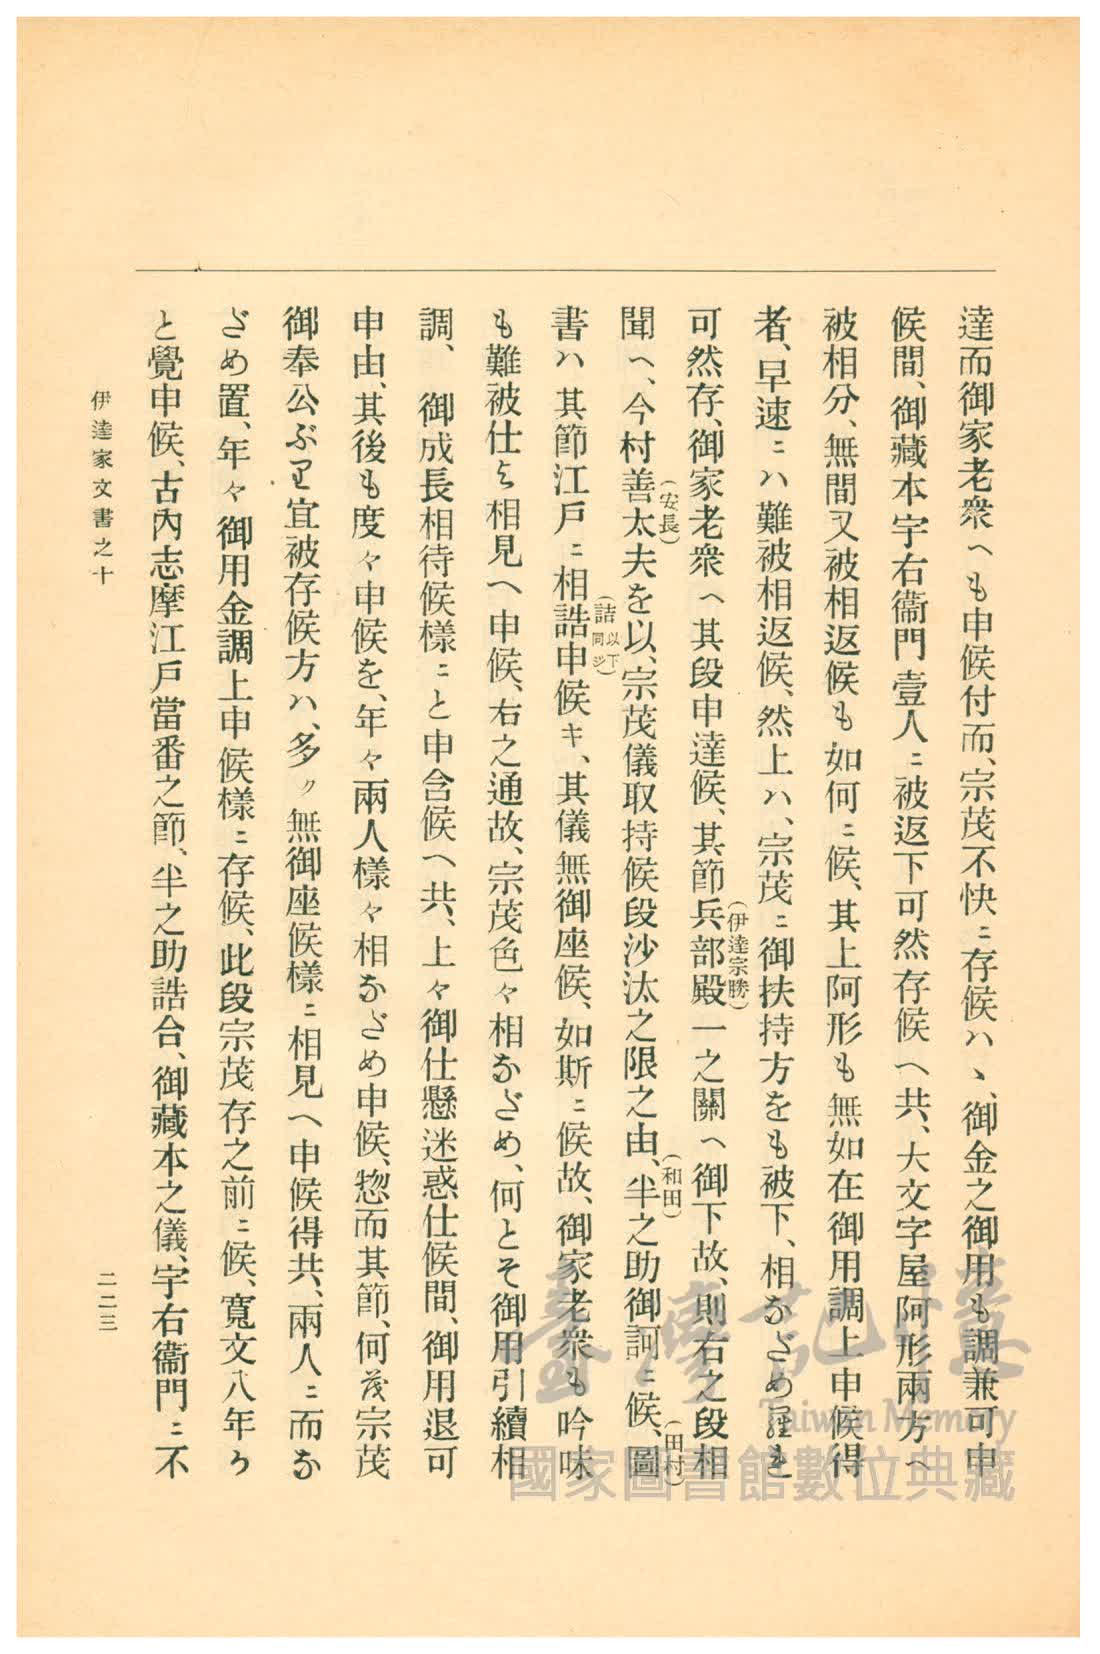 達而御家老衆へも申候付而、宗茂不快ニ存候ハヽ、御金之御用も調兼可申
候間、御藏本宇右衞門壹人ニ被返下可然存候へ共、大文字屋阿形兩方へ
被相分、無間又被相返候も如何ニ候、其上阿形も無如在御用調上申候得
者、早速ニハ難被相返候、然上ハ、宗茂ニ御扶持方をも被下、相なだめ
可然存、御家老衆へ其段申達候、其節兵部殿一之關へ御下故、則右之段相
(伊達宗勝)
聞へ、今村善太夫を以、宗茂儀取持候段沙汰之限之由、半之助御訶ニ候、圖
(安長)
(和田)
(田村)
書ハ其節江戸ニ相誥申候キ、其儀無御座候、如斯ニ候故、御家老衆も吟味
(詰以下同ジ)
も難被仕と相見へ申候、右之通故、宗茂色々相なだめ、何とそ御用引續相
調、御成長相待候樣ニと申含候へ共、上々御仕懸迷惑仕候間、御用退可
申由、其後も度々申候を、年々兩人樣々相なだめ申候、惣而其節、何茂宗茂
御奉公ぶり宜被存候方ハ、多ク無御座候樣ニ相見へ申候得共、兩人ニ而な
だめ置、年々御用金調上申候樣ニ存候、此段宗茂存之前ニ候、寬文八年か
と覺申候、古內志摩江戸當番之節、半之助誥合、御藏本之儀、宇右衞門ニ不
伊達家文書之十
二二三
臺灣記憶
Taiwan Memory
國家圖書館數位典藏